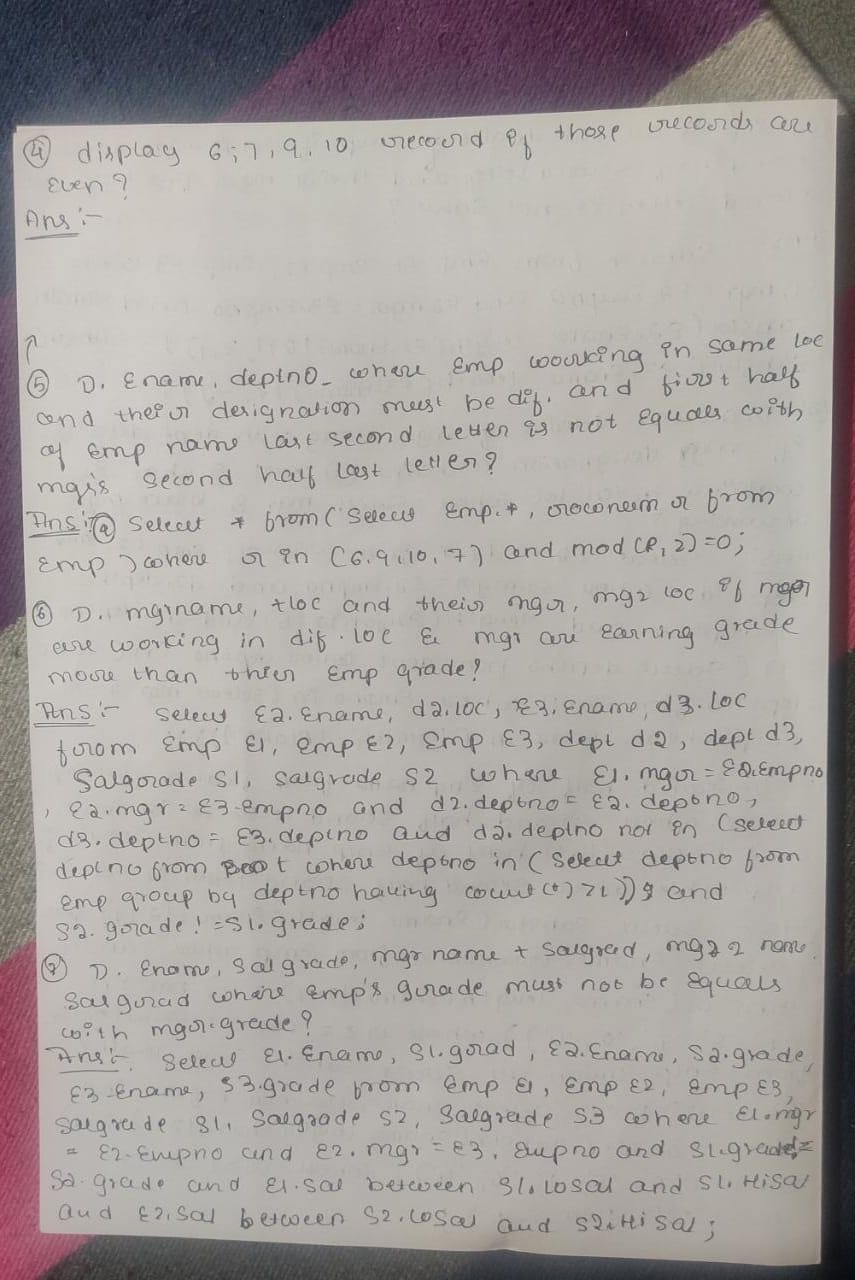 ④ display 6;7,9,10 record if those records are
even?
Ans:-
⑤ D. Ename, deptno where Emp working in same loc
and their designation must be dif. and first half
of Emp name last second letter is not equals with
mgr's second half last letter?
Ans:- ④ Select * from (Select Emp.*, rownum r from
Emp) where r in (6,9,10,7) and mod(R,2)=0;
⑥ D. mgrname, +loc and their mgr, mg2 loc if mgr
are working in dif. loc & mgr are earning grade
more than thier Emp grade?
Ans:- Select E2.Ename, d2.loc, E3.Ename, d3.loc
from Emp E1, Emp E2, Emp E3, dept d2, dept d3,
Salgrade S1, salgrade S2 where E1.mgr = E2.Empno
, E2.mgr = E3.empno and d2.deptno = E2.deptno,
d3.deptno = E3.deptno and d2.deptno not in (select
deptno from where deptno in (Select deptno from
emp group by deptno having count(*) >1)) and
S2.grade != S1.grade;
⑦ D. Ename, Salgrade, mgr name + Salgrad, 2 name
Salgrad where emp's grade must not be equals
with mgr.grade?
Ans:- Select E1.Ename, S1.grad, E2.Ename, S2.grade,
E3.Ename, S3.grade from Emp E1, Emp E2, Emp E3,
Salgrade S1, Salgrade S2, Salgrade S3 where E1.mgr
= E2.Empno and E2.mgr = E3.Empno and S1.grade !=
S2.grade and E1.sal between S1.losal and S1.Hisal
and E2.Sal between S2.LoSal and S2.HiSal;